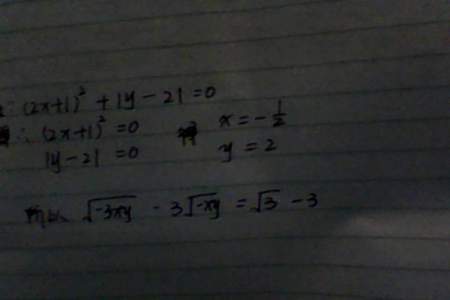 ∵ (2x+1)² + |y-2| = 0
∴ (2x+1)² = 0 x = -1/2
|y-2| = 0 y = 2
所以 √-3xy - 3√-xy = √3 - 3